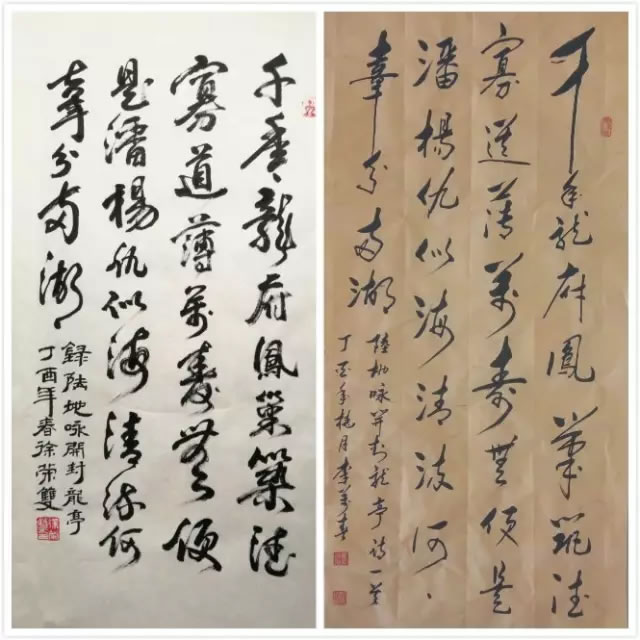 千年龍府鳳巢築德
寡道薄萬壽無便
是潘楊仇似海清流何
辜分兩湖
錄陸地咏開封龍亭
丁酉年春徐荣雙
千年龍府鳳巢筑德
寡道薄萬壽無便是
潘楊仇似海清流何
辜分兩湖
陸地咏開封龍亭詩一首
丁酉年桃月李